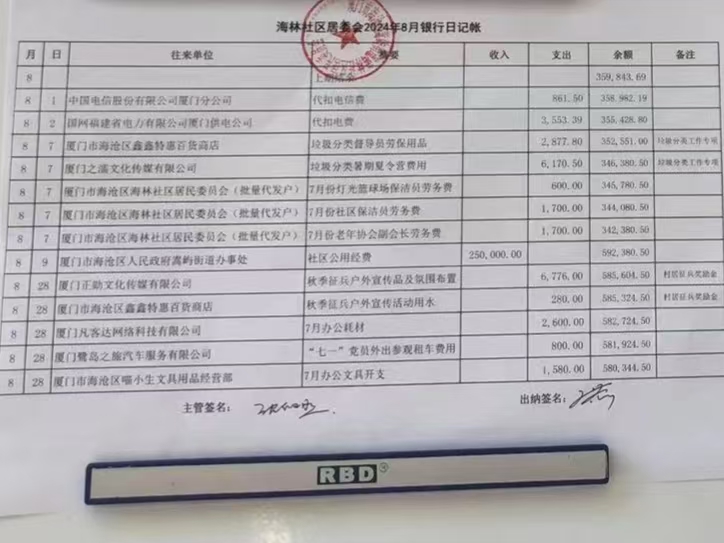 海林社区居委会2024年8月银行日记帐
月 日 往来单位 摘要 收入 支出 余额 备注
8 359,843.69
8 1 中国电信股份有限公司厦门分公司 代扣电信费 861.50 358,982.19
8 2 国网福建省电力有限公司厦门供电公司 代扣电费 3,553.39 355,428.80
8 7 厦门市海沧区鑫鑫特惠百货商店 垃圾分类督导员劳保用品 2,877.80 352,551.00 垃圾分类工作专项
8 7 厦门之濡文化传媒有限公司 垃圾分类暑期夏令营费用 6,170.50 346,380.50 垃圾分类工作专项
8 7 厦门市海沧区海林社区居民委员会(批量代发户) 7月份灯光篮球场保洁员劳务费 600.00 345,780.50
8 7 厦门市海沧区海林社区居民委员会(批量代发户) 7月份社区保洁员劳务费 1,700.00 344,080.50
8 7 厦门市海沧区海林社区居民委员会(批量代发户) 7月份老年协会副会长劳务费 1,700.00 342,380.50
8 9 厦门市海沧区人民政府嵩屿街道办事处 社区公用经费 250,000.00 592,380.50
8 28 厦门正勋文化传媒有限公司 秋季征兵户外宣传品及氛围布置 6,776.00 585,604.50 村居征兵奖励金
8 28 厦门市海沧区鑫鑫特惠百货商店 秋季征兵户外宣传活动用水 280.00 585,324.50 村居征兵奖励金
8 28 厦门凡客达网络科技有限公司 7月办公耗材 2,600.00 582,724.50
8 28 厦门鹭岛之旅汽车服务有限公司 “七一”党员外出参观租车费用 800.00 581,924.50
8 28 厦门市海沧区喵小生文具用品经营部 7月办公文具开支 1,580.00 580,344.50
主管签名: 出纳签名:
RBD®